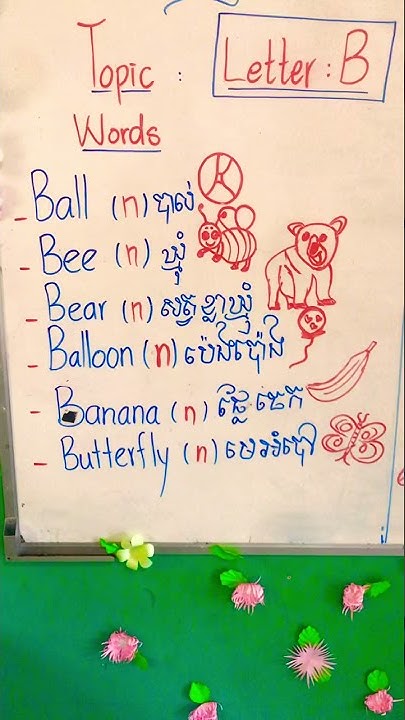 Topic : Letter : B
Words
- Ball (n) បាល់
- Bee (n) ឃ្មុំ
- Bear (n) សត្វខ្លាឃ្មុំ
- Balloon (n) ប៉េងប៉ោង
- Banana (n) ផ្លែចេក
- Butterfly (n) មេអំបៅ